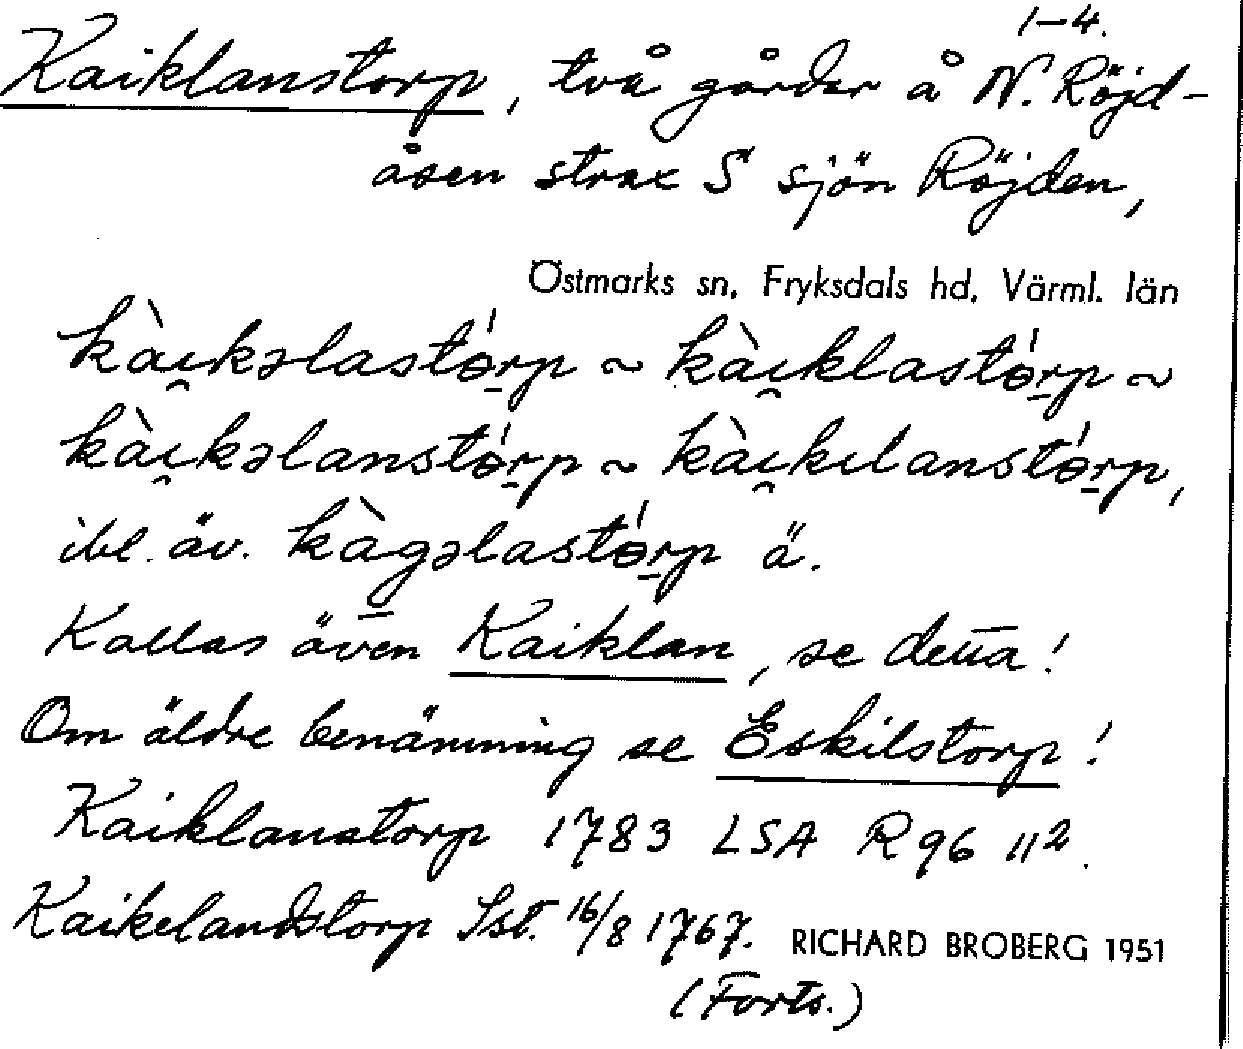 1-4.
Kaiklanstorp, två gårdar å N. Röjd-
åsen strax S sjön Röjden,
Östmarks sn, Fryksdals hd, Värml. län
kài̯kəlastɵ́rp ~ kài̯klastɵ́rp ~
kài̯kəlanstɵ́rp ~ kài̯kılanstɵ́rp,
ibl. äv. kàgəlastɵ́rp ä.
Kallas även Kaiklan, se detta!
Om äldre benämning se Eskilstorp!
Kaiklanstorp 1783 LSA R 96 11²
Kaikelandstorp Sst. 16/8 1767.
RICHARD BROBERG 1951
(Forts.)